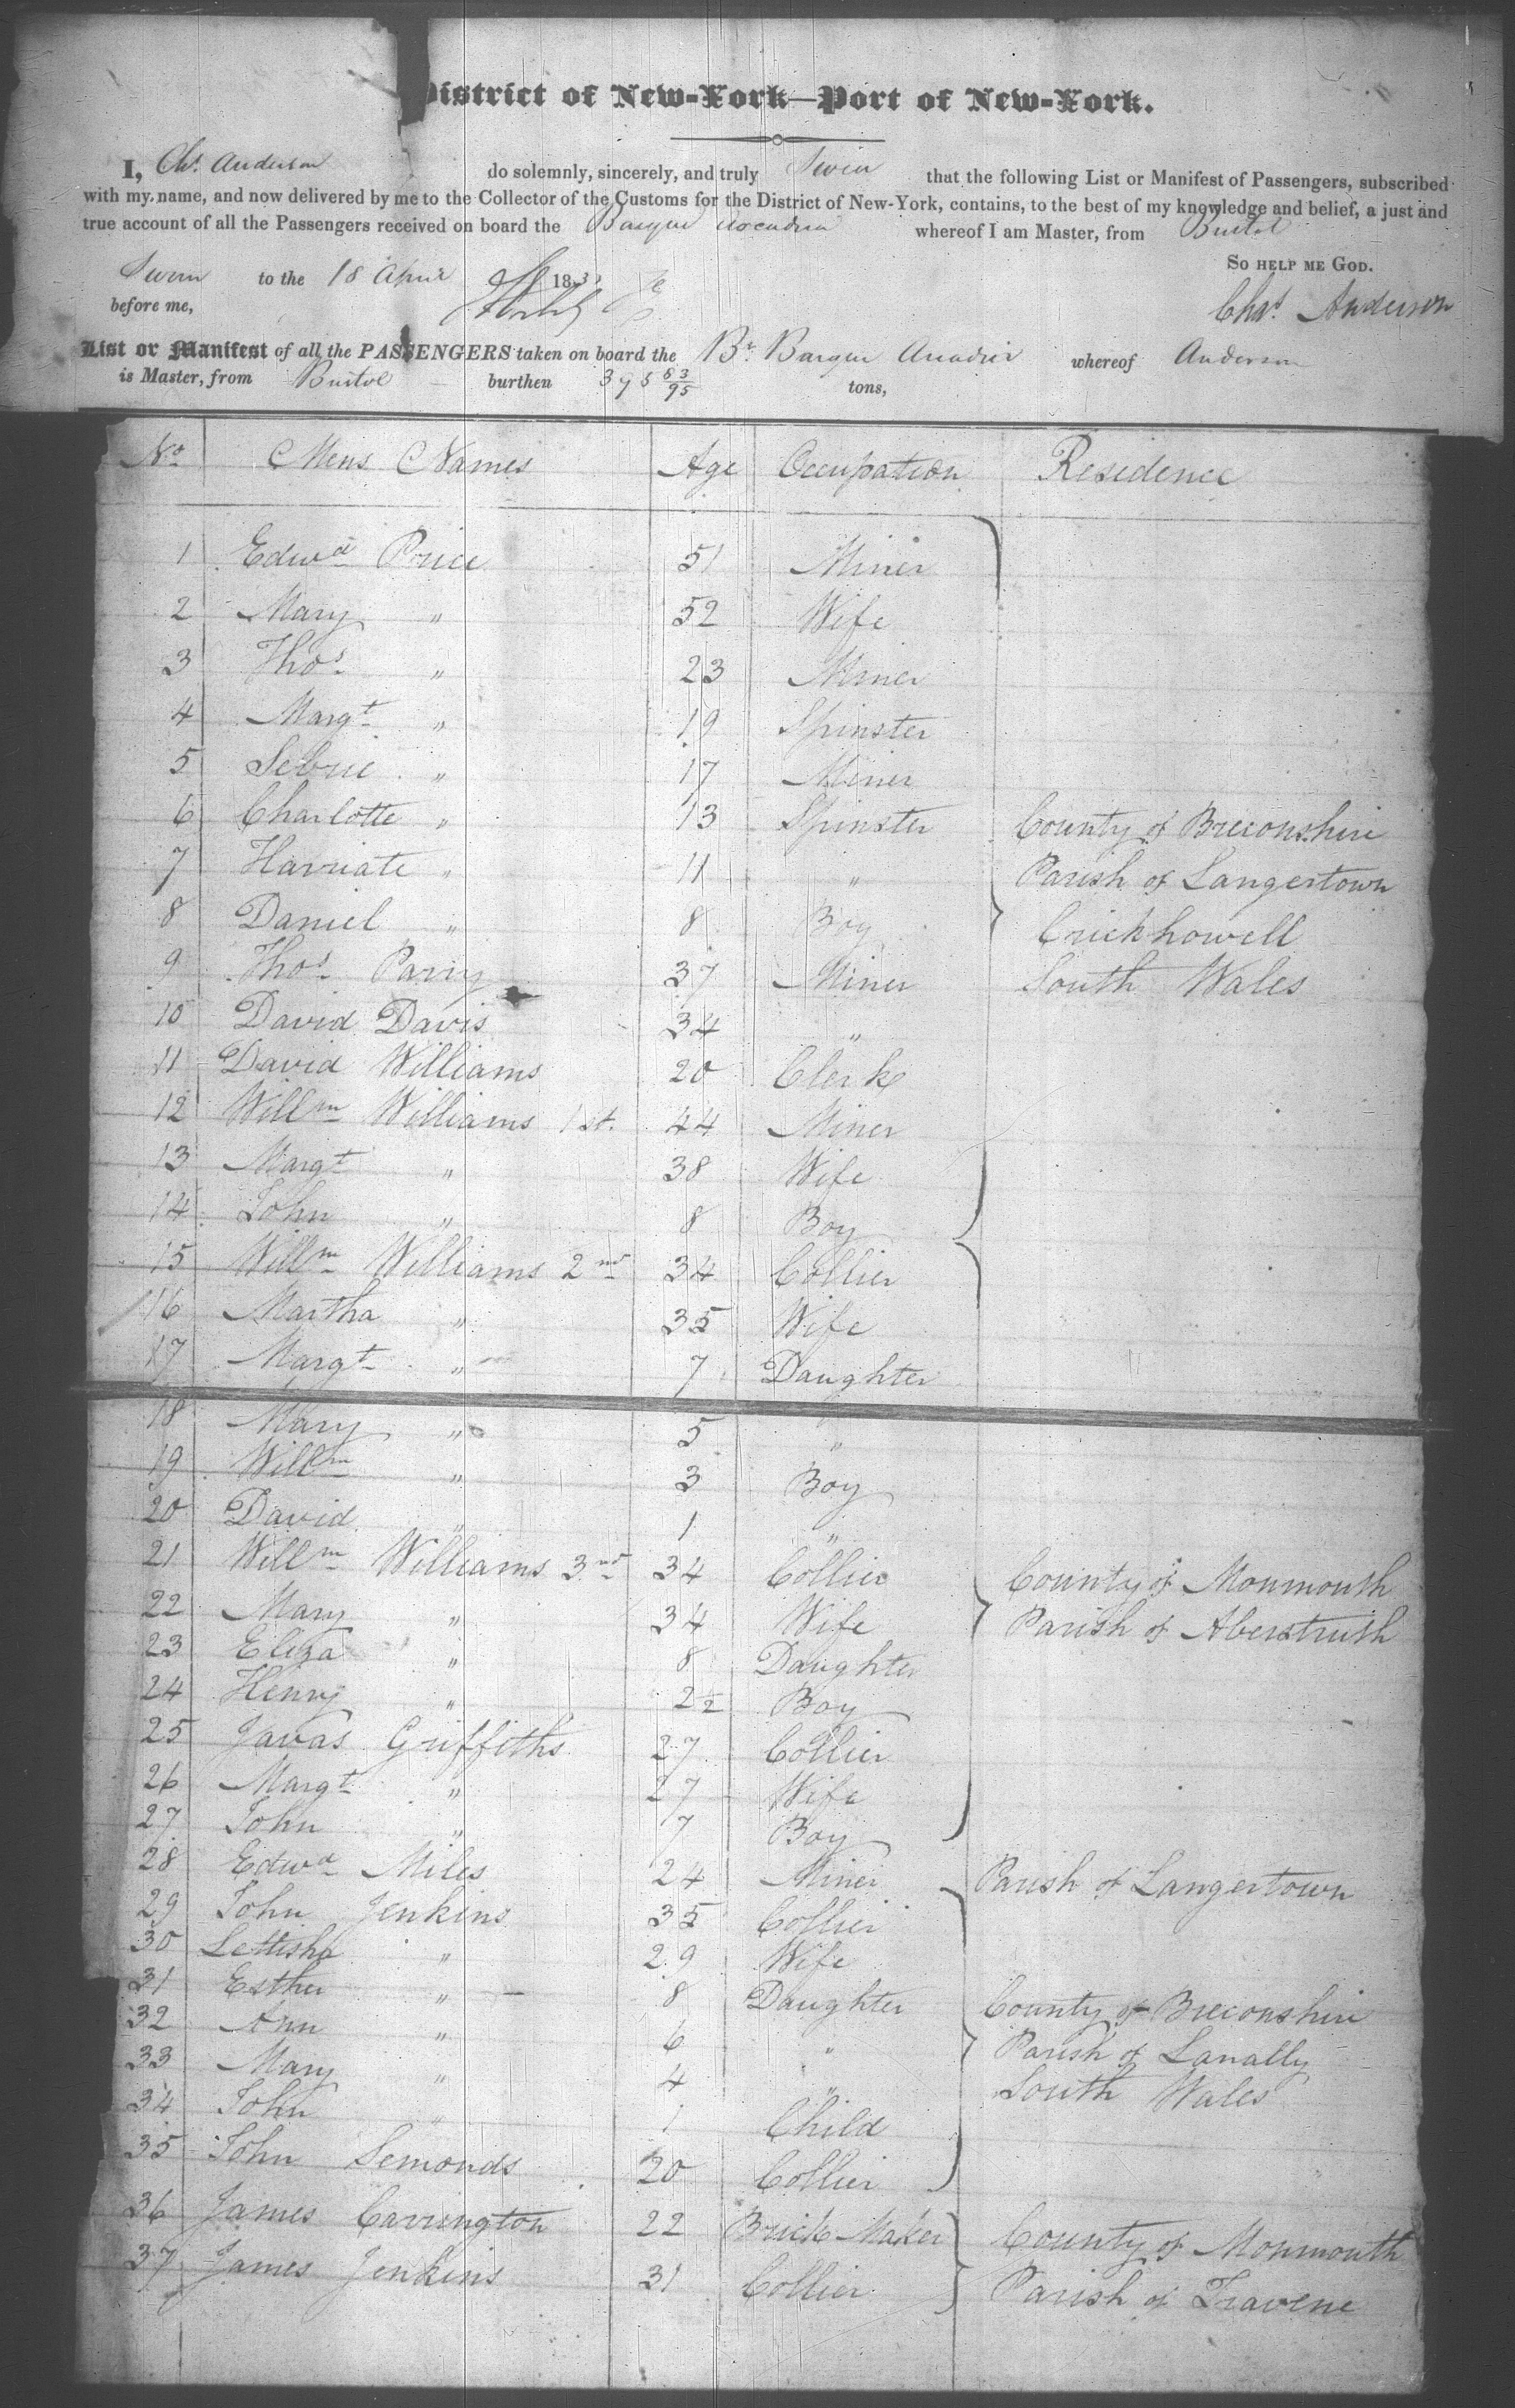 District of New-York—Port of New-York.
I, Chs. Anderson do solemnly, sincerely, and truly Swear that the following List or Manifest of Passengers, subscribed
with my name, and now delivered by me to the Collector of the Customs for the District of New-York, contains, to the best of my knowledge and belief, a just and
true account of all the Passengers received on board the Barque whereof I am Master, from Bristol
So help me God.
Sworn to the 18 April 183
before me,
Chas. Anderson
List or Manifest of all the PASSENGERS taken on board the Br. Barque whereof Anderson
is Master, from Bristol burthen 395 83/95 tons,
No. Mens Names Age Occupation Residence
1 Edwd Price 51 Miner
2 Mary " 52 Wife
3 Thos. " 23 Miner
4 Margt " 19 Spinster
5 " 17 Miner
6 Charlotte " 13 Spinster County of Breconshire
7 Harriate " 11 " Parish of Langertown
8 Daniel " 8 Boy Crickhowell
9 Thos. Parry 37 Miner South Wales
10 David Davis 34 "
11 David Williams 20 Clerk
12 Willm Williams 1st. 44 Miner
13 Margt " 38 Wife
14 John " 8 Boy
15 Willm Williams 2nd 34 Collier
16 Martha " 35 Wife
17 Margt " 7 Daughter
18 Mary " 5 "
19 Willm " 3 Boy
20 David " 1 "
21 Willm Williams 3nd 34 Collier County of Monmouth
22 Mary " 34 Wife Parish of Aberstruth
23 Eliza " 8 Daughter
24 Henry " 2½ Boy
25 Javas Griffiths 27 Collier
26 Margt " 27 Wife
27 John " 7 Boy
28 Edwd Miles 24 Miner Parish of Langertown
29 John Jenkins 35 Collier
30 Lettisha " 29 Wife
31 Esther " 8 Daughter County of Breconshire
32 Ann " 6 " Parish of Lanally
33 Mary " 4 " South Wales
34 John " 1 Child
35 John Semonds 20 Collier
36 James Carrington 22 Brick Maker County of Monmouth
37 James Jenkins 31 Collier Parish of Travene